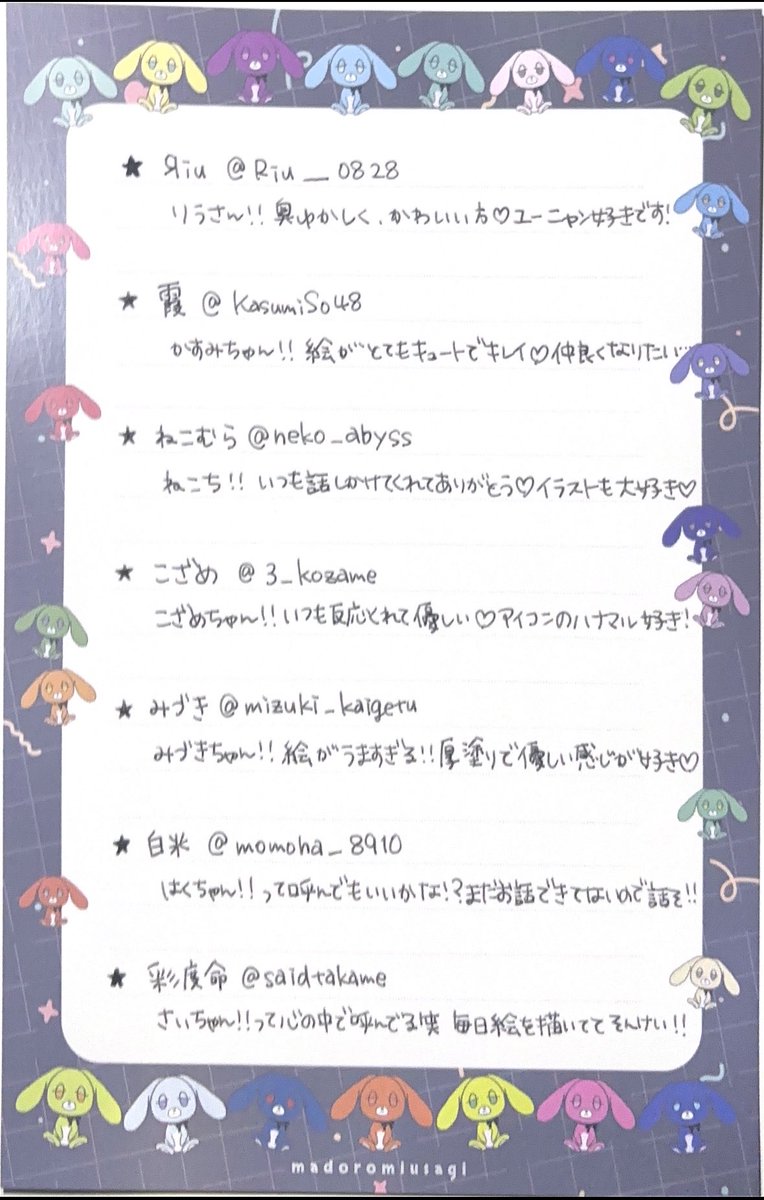 ★ Яiu @Riu__0828
りうさん!! 奥ゆかしく、かわいい方♡ユーニャン好きです!
★ 霞 @KasumiSo48
かすみちゃん!! 絵がとてもキュートでキレイ♡仲良くなりたい…
★ ねこむら@neko_abyss
ねこち!! いつも話しかけてくれてありがとう♡イラストも大好き♡
★ こざめ @3_kozame
こざめちゃん!! いつも反応くれて優しい♡アイコンのハナマル好き!
★ みづき@mizuki_kaigeru
みづきちゃん!! 絵がうますぎる!! 厚塗りで優しい感じが好き♡
★ 白米 @momoha_8910
はくちゃん!! って呼んでもいいかな!?まだお話できてないので話そ!!
★ 彩度命 @saidtakame
さいちゃん!!って心の中で呼んでる笑 毎日絵を描いててそんけい!!
madoromiusagi